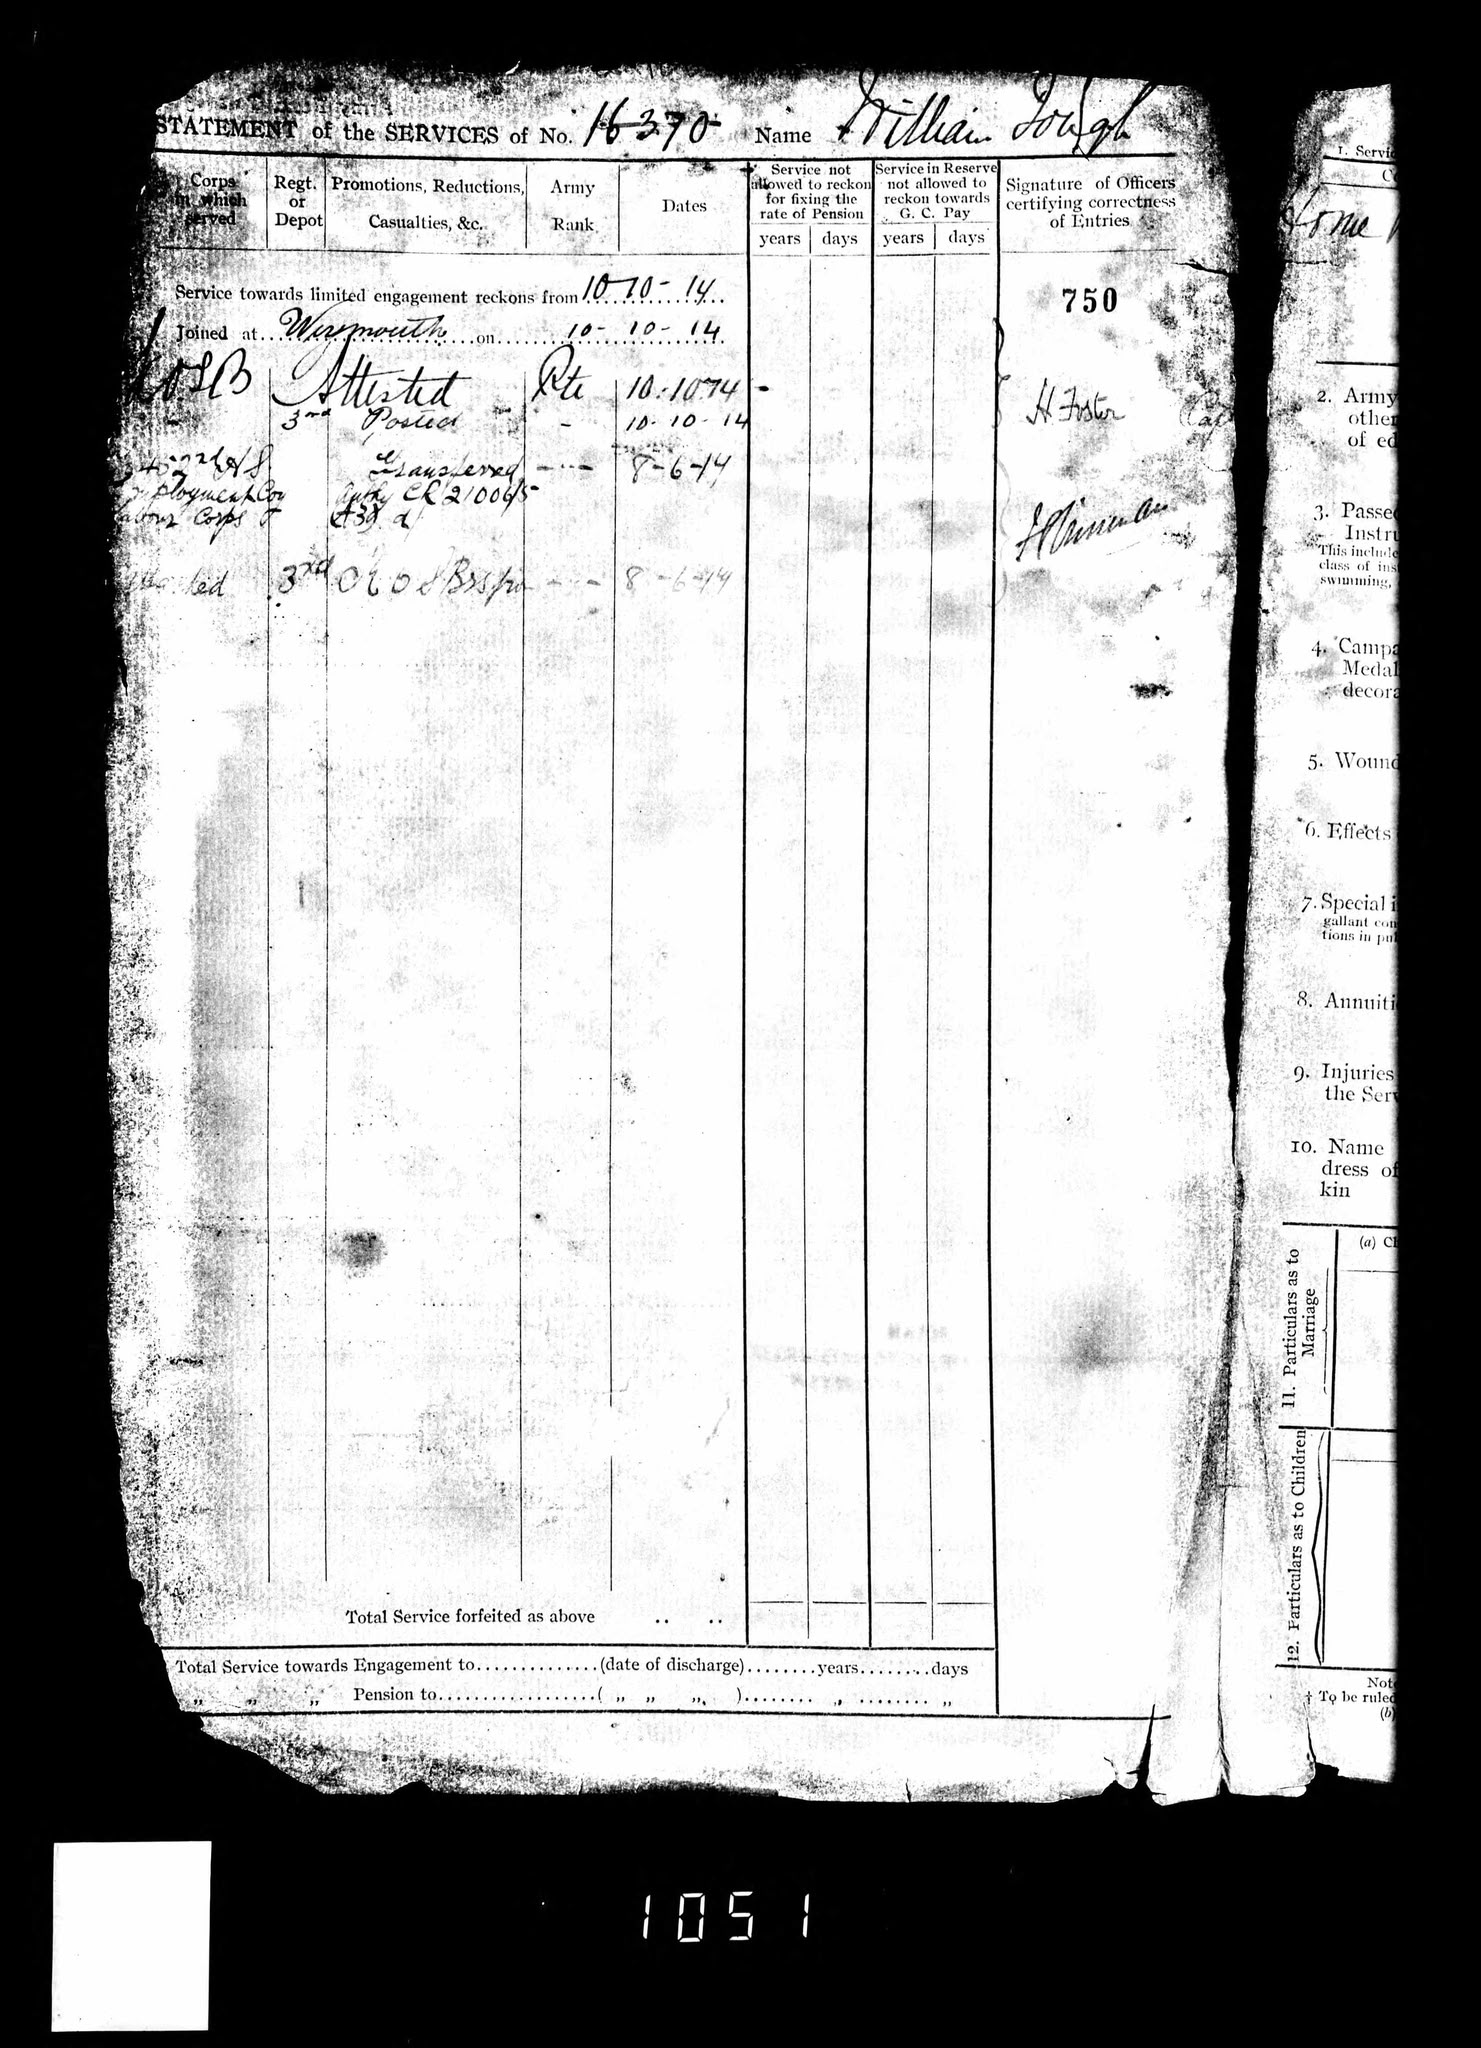 STATEMENT of the SERVICES of No. 16370 Name William Tough
Corps in which served
Regt. or Depot
Promotions, Reductions, Casualties, &c.
Army Rank
Dates
Service not allowed to reckon for fixing the rate of Pension
years days
Service in Reserve not allowed to reckon towards G. C. Pay
years days
Signature of Officers certifying correctness of Entries
Service towards limited engagement reckons from 10-10-14
750
Joined at on 10-10-14
Attested Pte 10.10.14
3rd Posted 10-10-14
H Foster
Transferred
Corps
3rd
Total Service forfeited as above .. ..
Total Service towards Engagement to..............(date of discharge)........years........days
„ „ „ Pension to..................( „ „ „ )........ „ ........ „
1. Servic
2. Army
other
of ed
3. Passe
Instru
This include
class of ins
swimming,
4. Campa
Medal
decora
5. Wound
6. Effects
7. Special i
gallant con
tions in pu
8. Annuiti
9. Injuries
the Serv
10. Name
dress of
kin
11. Particulars as to Marriage
(a) Ch
12. Particulars as to Children
Note
† To be ruled
(b)
1051